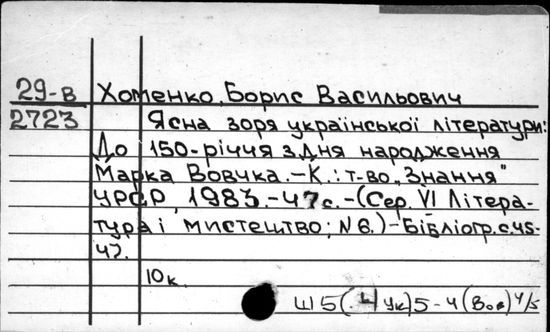 29-в Хоменко, Борис Васильович
2723 Ясна зоря української літератури:
До 150-річчя з.Дня народження
Марка Вовчка.-К.: т-во „Знання"
УРСР, 1983.-47с.-(Сер. VI Літера-
тура і мистецтво; N 6.)-Бібліогр.с.45-
47.
10к.
Ш5(4Ук)5-4(Вов) 4/5